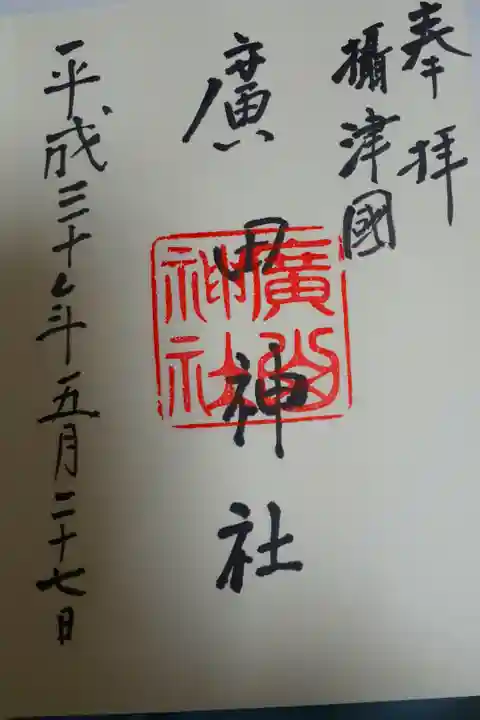 奉拝
攝津國
廣田神社
廣田
神社
平成三十年五月二十七日